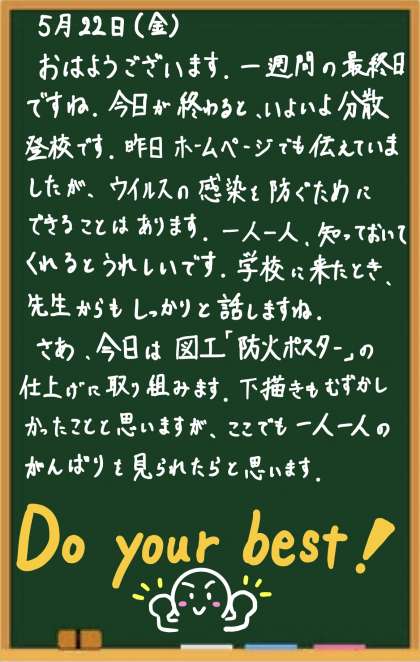 5月22日(金)
おはようございます. 一週間の最終日
ですね. 今日が終わると、いよいよ分散
登校です. 昨日ホームページでも伝えていま
したが、ウイルスの感染を防ぐために
できることはあります. 一人一人、知っておいて
くれるとうれしいです. 学校に来たとき、
先生からもしっかりと話しますね.
さあ、今日は図工「防火ポスター」の
仕上げに取り組みます. 下描きもむずかし
かったことと思いますが、ここでも一人一人の
がんばりを見られたらと思います.
Do your best!